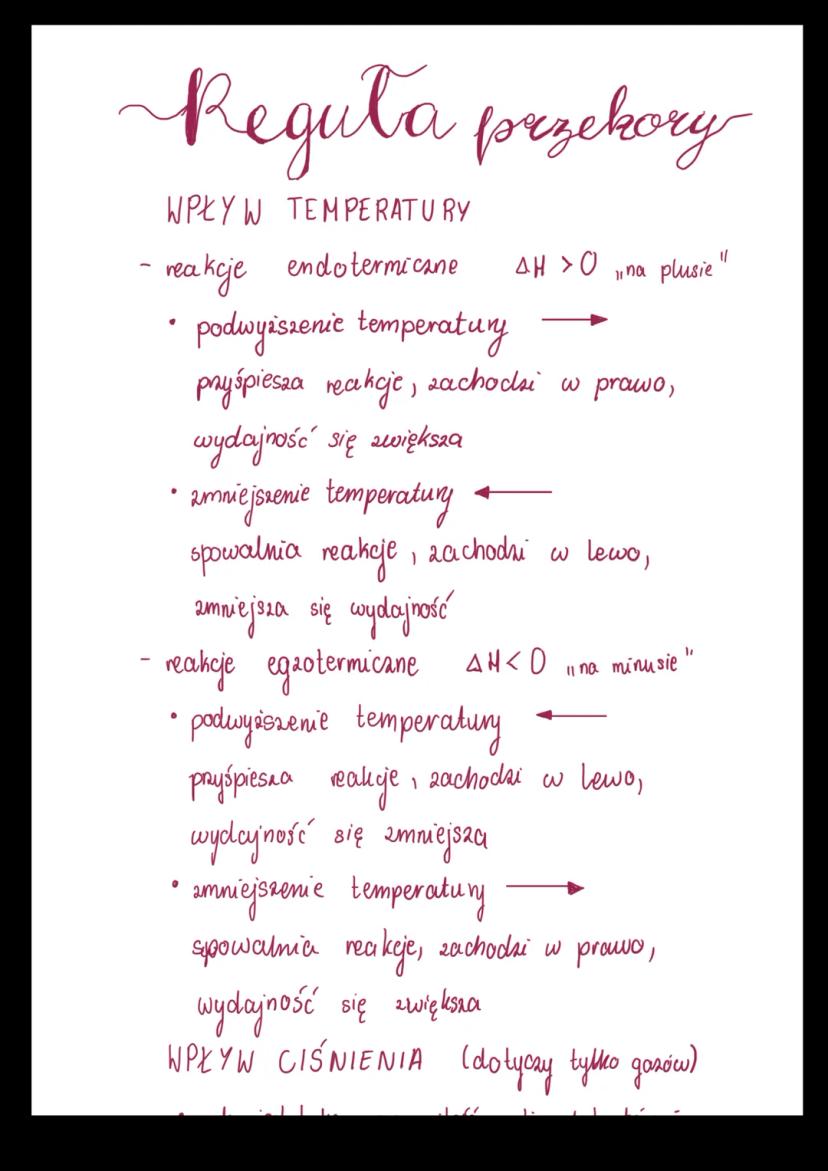 Reguła przekory
WPŁYW TEMPERATURY
- reakcje endotermiczne ΔH > 0 „na plusie"
• podwyższenie temperatury →
przyśpiesza reakcje, zachodzi w prawo,
wydajność się zwiększa
• zmniejszenie temperatury ←
spowalnia reakcje, zachodzi w lewo,
zmniejsza się wydajność
- reakcje egzotermiczne ΔH < 0 „na minusie"
• podwyższenie temperatury ←
przyśpiesza reakcje, zachodzi w lewo,
wydajność się zmniejsza
• zmniejszenie temperatury →
spowalnia reakcje, zachodzi w prawo,
wydajność się zwiększa
WPŁYW CIŚNIENIA (dotyczy tylko gazów)